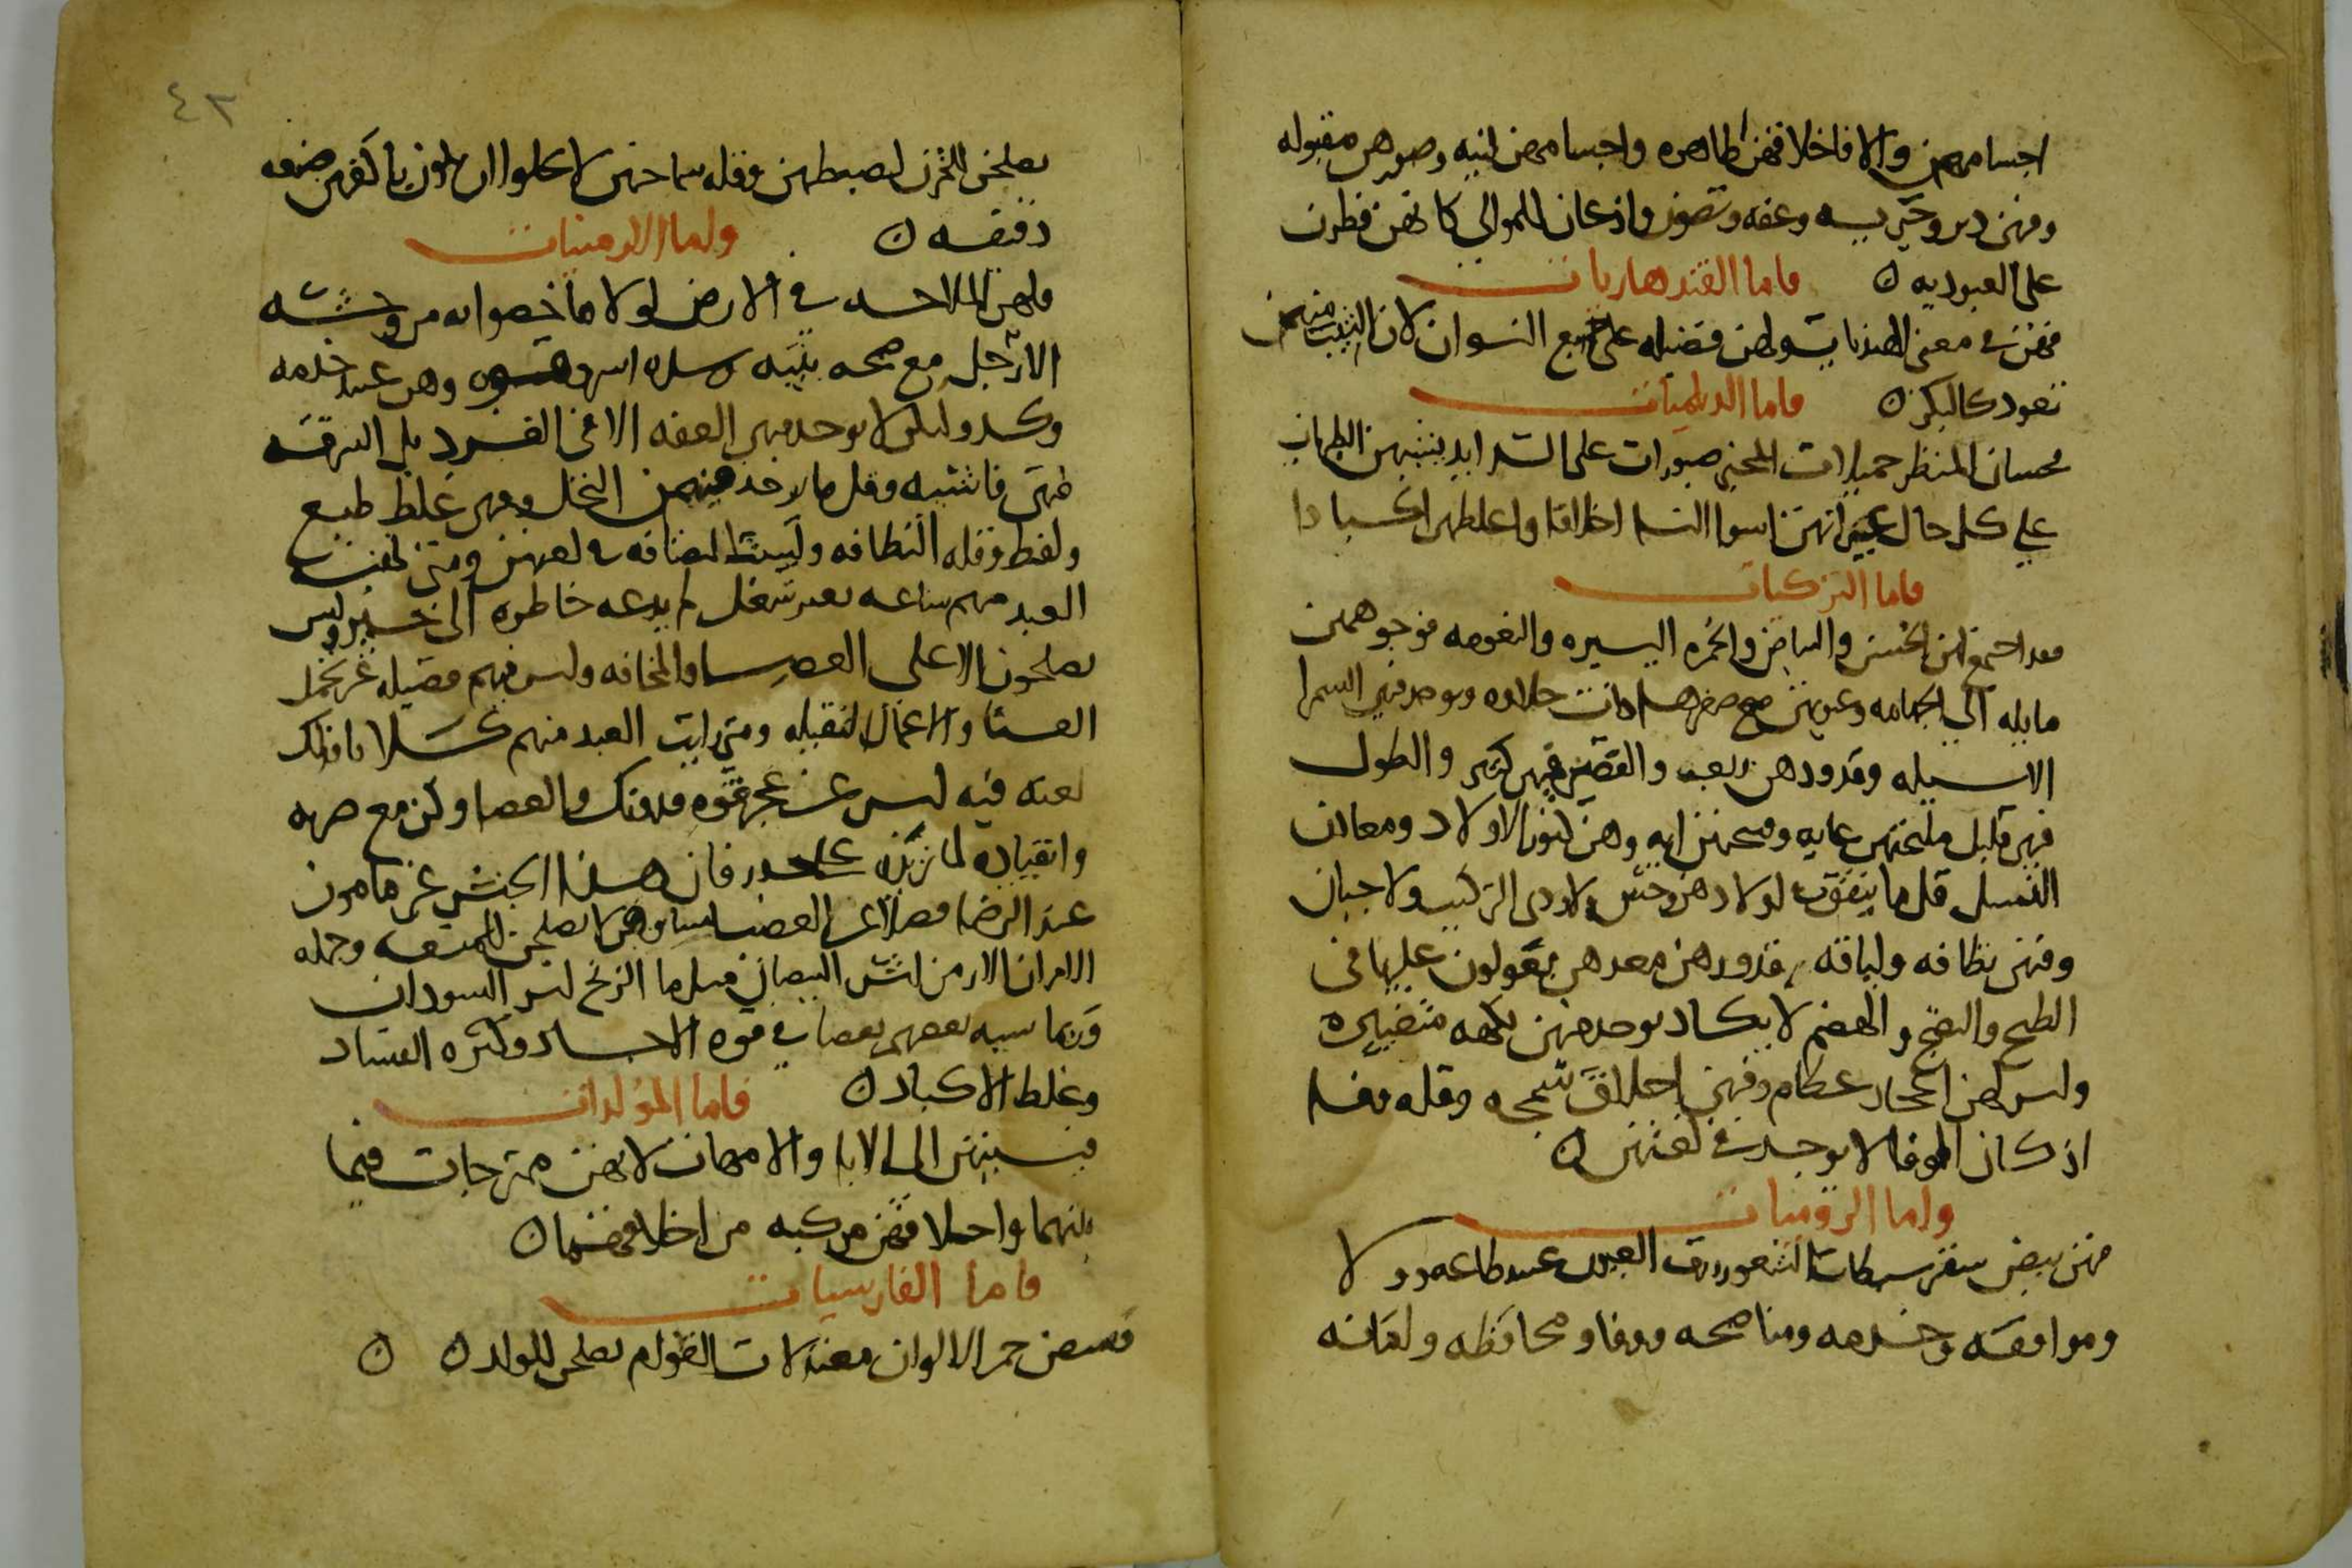 اجسامهن والا فاخلاقهن طاهره واجسامهن لينه وصورهن مقبوله
وفيهن دين وخيريه وعفه وتصون واذعان للموالي كانهن فطرن
على العبوديه ن فاما القندهاريات
فهن في معنى الهنديات ولهن فضيله على جميع النسوان لان الثيب منهن
تعود كالبكر ن فاما الديلميات
فحسان المنظر جميلات المخبر صبورات على الشدايد
على كل حال غير انهن اسوا النسا اخلاقا واغلظهن اكبادا
فاما التركيات
فقد اجتمع لهن الحسن والبياض والحمره اليسيره والنعومه فوجوههن
مايله الى الجهامه وعيونهن مع صغرها ذات حلاوه ويوجد فيهن السمرا
الاسيله وقدودهن ربعه والقصر فيهن كثير والطول
فيهن قليل مليحتهن غايه وهن كنوز الاولاد ومعادن
النسل قل ما يتفق في اولادهن وحش ولا ردي التركيب ولا جبان
وفيهن نظافه ولباقه قدورهن معدهن يعولون عليها في
الطبخ والنضج والهضم لا يكاد يوجد فيهن نكهه متغيره
وليس لهن اعجاز عظام وفيهن اخلاق سمجه وقله وفا
اذ كان الوفا لا يوجد في لغتهن ن
واما الروميات
فهن بيض شقر سبطات الشعور زرق العيون عبيد طاعه وولا
وموافقه وخدمه ومناصحه ووفا ومحافظه وامانه
٤٢
يصلحن للخزن لضبطهن وقله سماحتهن لا يخلوا ان يكون باكفهن صنعه
دقيقه ن واما الارمنيات
فلهن الملاحه في الارمن لولا ما خصوا به من وحشه
الارجل مع صحه بنيه وشده اسر وهن عبيد خدمه
وكد وليس لا يوجد فيهن العفه الا في الفرد بل السرقه
فيهن فاشيه وقل ما يوجد فيهن البخل وفيهن غلظ طبع
ولفظ وقله النظافه وليست النظافه في لغتهن ومتى
العبد منهم ساعه بغير شغل لم يدعه خاطره الى خير وليس
يصلحون الا على العصا والمخافه وليس فيهم فضيله غير تحمل
العنا والاعمال الثقيله ومتى رايت العبد منهم كسلا نا فذلك
لعله فيه ليس عن عجز قوه فدونك والعصا وكن مع ضربه
وانقياده لما تريده على حذر فان هذا الجنس غير مامون
عند الرضا فضلا عن الغضب ونساوهن لا يصلحن للمتعه وجمله
الامر ان الارمن اشر البيضان مثل ما الزنج اشر السودان
وربما اشبه بعضهم بعضا في قوه الاجساد وكثره الفساد
وغلظ الاكباد ن فاما المولدات
فنسبتهن الى الابا والامهات لانهن ممتزجات فيما
بينهما واخلاقهن مركبه من اخلاقهما ن
فاما الفارسيات
فبيض حمر الالوان معتدلات القوام يصلحن للولد ن ن